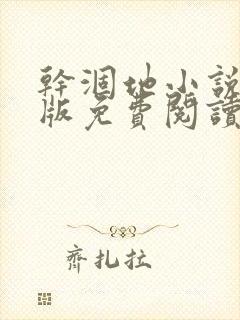 幹涸地小說
版免費閱讀
齊扎拉